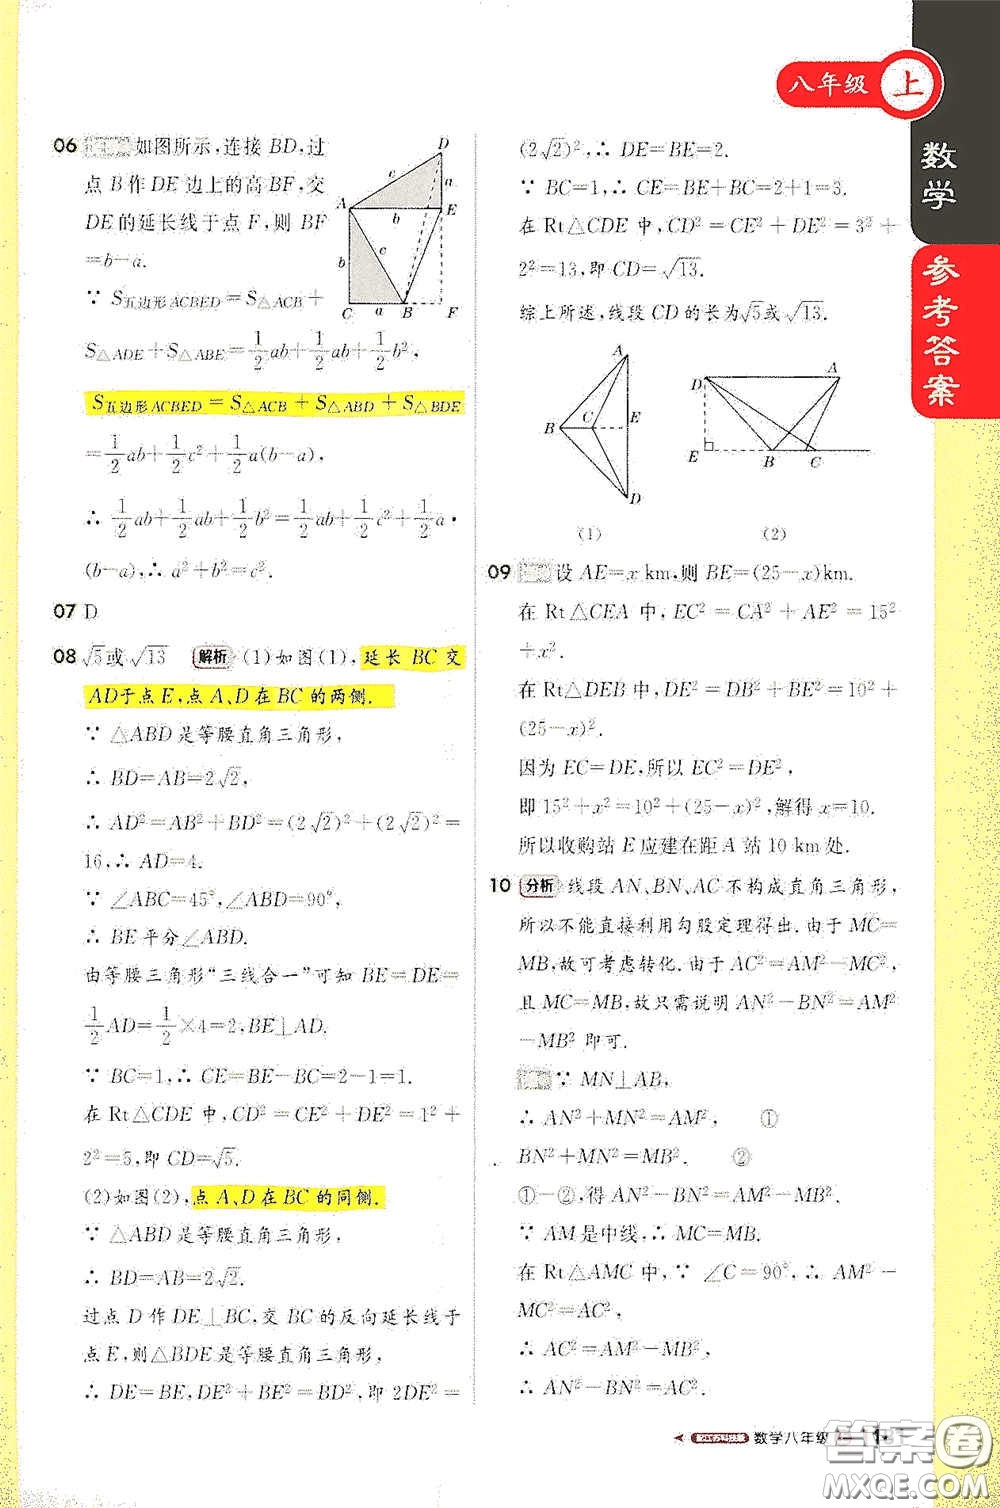 八年级 上
数学
参考答案
06 如图所示,连接 BD,过
点 B 作 DE 边上的高 BF,交
DE 的延长线于点 F,则 BF
=b-a.
∵ S五边形ACBED=S△ACB+
S△ADE+S△ABE=1/2ab+1/2ab+1/2b²,
S五边形ACBED=S△ACB+S△ABD+S△BDE
=1/2ab+1/2c²+1/2a(b-a),
∴ 1/2ab+1/2ab+1/2b²=1/2ab+1/2c²+1/2a·
(b-a),∴ a²+b²=c².
D
c
a
A
b
E
c
b
C a B F
07 D
08 √5或√13 解析 (1)如图(1),延长 BC 交
AD于点E,点A、D在BC的两侧.
∵ △ABD是等腰直角三角形,
∴ BD=AB=2√2,
∴ AD²=AB²+BD²=(2√2)²+(2√2)²=
16,∴ AD=4.
∵ ∠ABC=45°,∠ABD=90°,
∴ BE平分∠ABD.
由等腰三角形“三线合一”可知 BE=DE=
1/2AD=1/2×4=2,BE⊥AD.
∵ BC=1,∴ CE=BE-BC=2-1=1.
在 Rt△CDE 中,CD²=CE²+DE²=1²+
2²=5,即 CD=√5.
(2)如图(2),点A、D在BC的同侧.
∵ △ABD 是等腰直角三角形,
∴ BD=AB=2√2.
过点 D 作 DE⊥BC,交 BC 的反向延长线于
点E,则△BDE是等腰直角三角形,
∴ DE=BE,DE²+BE²=BD²,即 2DE²=
(2√2)²,∴ DE=BE=2.
∵ BC=1,∴ CE=BE+BC=2+1=3.
在 Rt△CDE 中,CD²=CE²+DE²=3²+
2²=13,即CD=√13.
综上所述,线段 CD 的长为√5或√13.
A
B C E
D
(1)
D A
E B C
(2)
09 设 AE=x km,则 BE=(25-x)km.
在 Rt△CEA 中,EC²=CA²+AE²=15²
+x².
在 Rt△DEB 中,DE²=DB²+BE²=10²+
(25-x)².
因为 EC=DE,所以 EC²=DE²,
即 15²+x²=10²+(25-x)²,解得 x=10.
所以收购站 E 应建在距 A 站 10 km处.
10 分析 线段 AN、BN、AC 不构成直角三角形,
所以不能直接利用勾股定理得出.由于 MC=
MB,故可考虑转化.由于 AC²=AM²-MC²,
且 MC=MB,故只需说明 AN²-BN²=AM²
-MB² 即可.
∵ MN⊥AB,
∴ AN²+MN²=AM², ①
BN²+MN²=MB². ②
①-②,得 AN²-BN²=AM²-MB².
∵ AM是中线,∴ MC=MB.
在 Rt△AMC 中,∵ ∠C=90°,∴ AM²-
MC²=AC²,
∴ AC²=AM²-MB²,
∴ AN²-BN²=AC².
数学八年级
答案圈
MXQE.COM